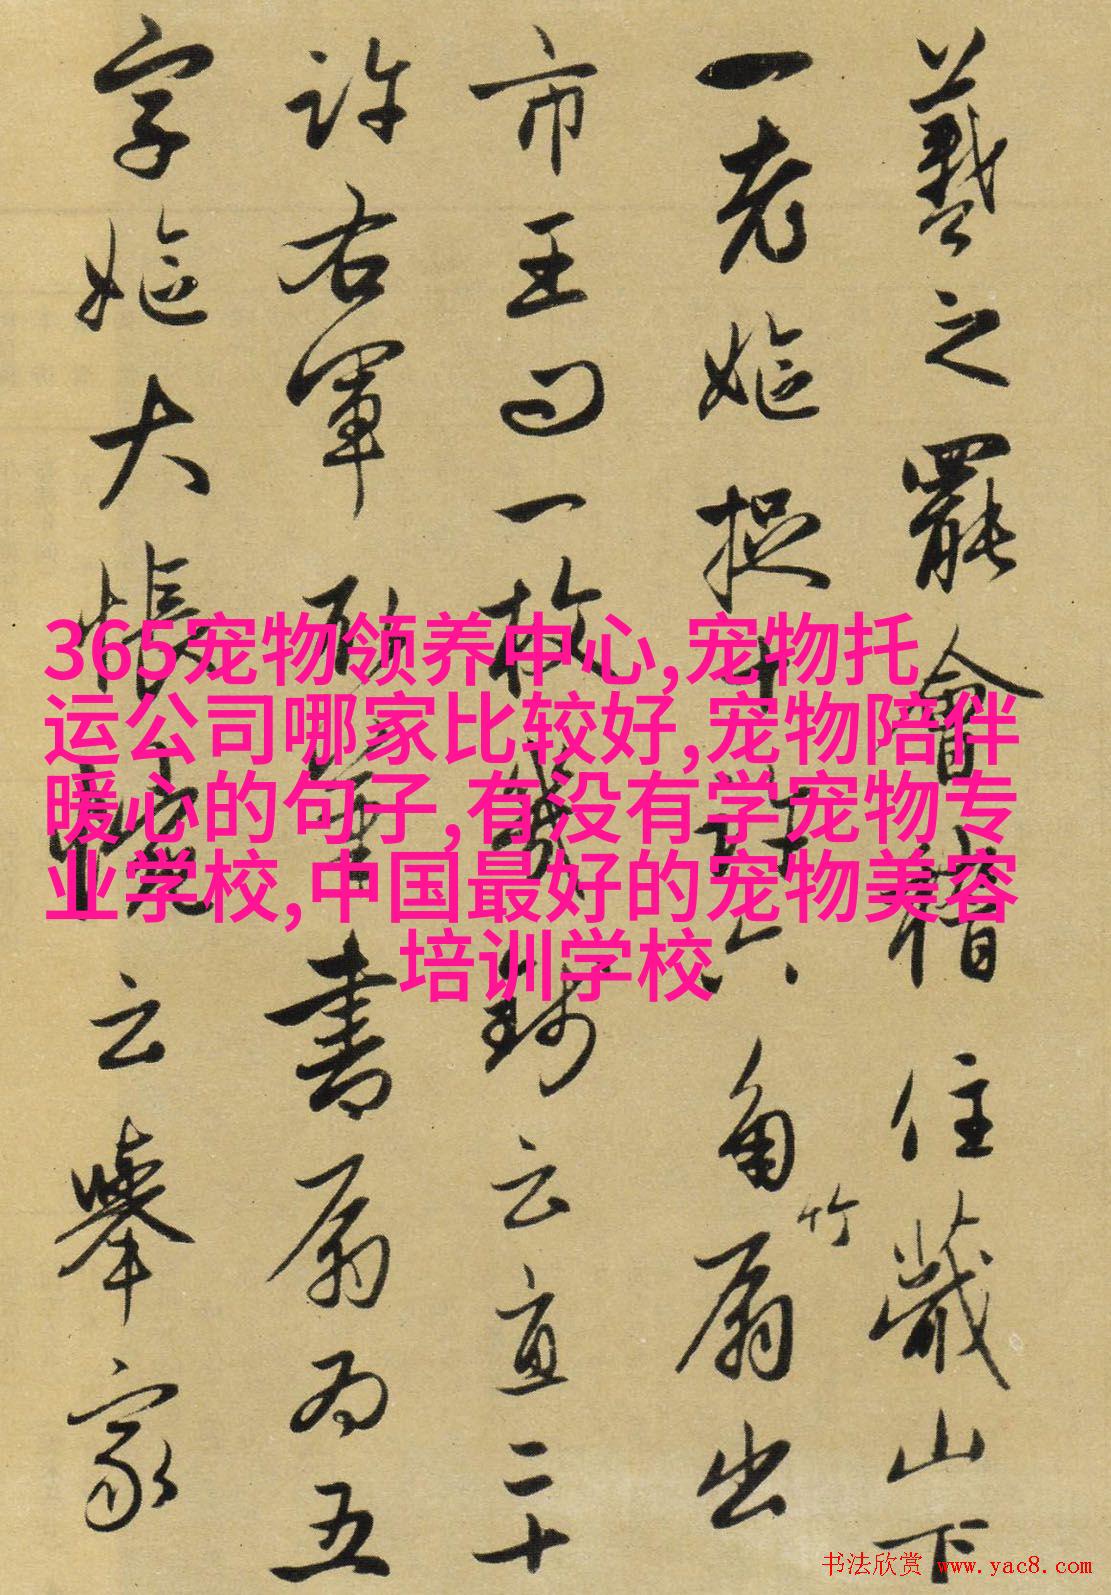 羲之罷會稽住蕺山下
一老嫗捉十許六角竹扇出
市王問一枚幾錢云直二十
許右軍取筆書扇為五
字嫗大悵惋云舉家
365宠物领养中心,宠物托
运公司哪家比较好,宠物陪伴
暖心的句子,有没有学宠物专
业学校,中国最好的宠物美容
培训学校
书法欣赏 www.yac8.com